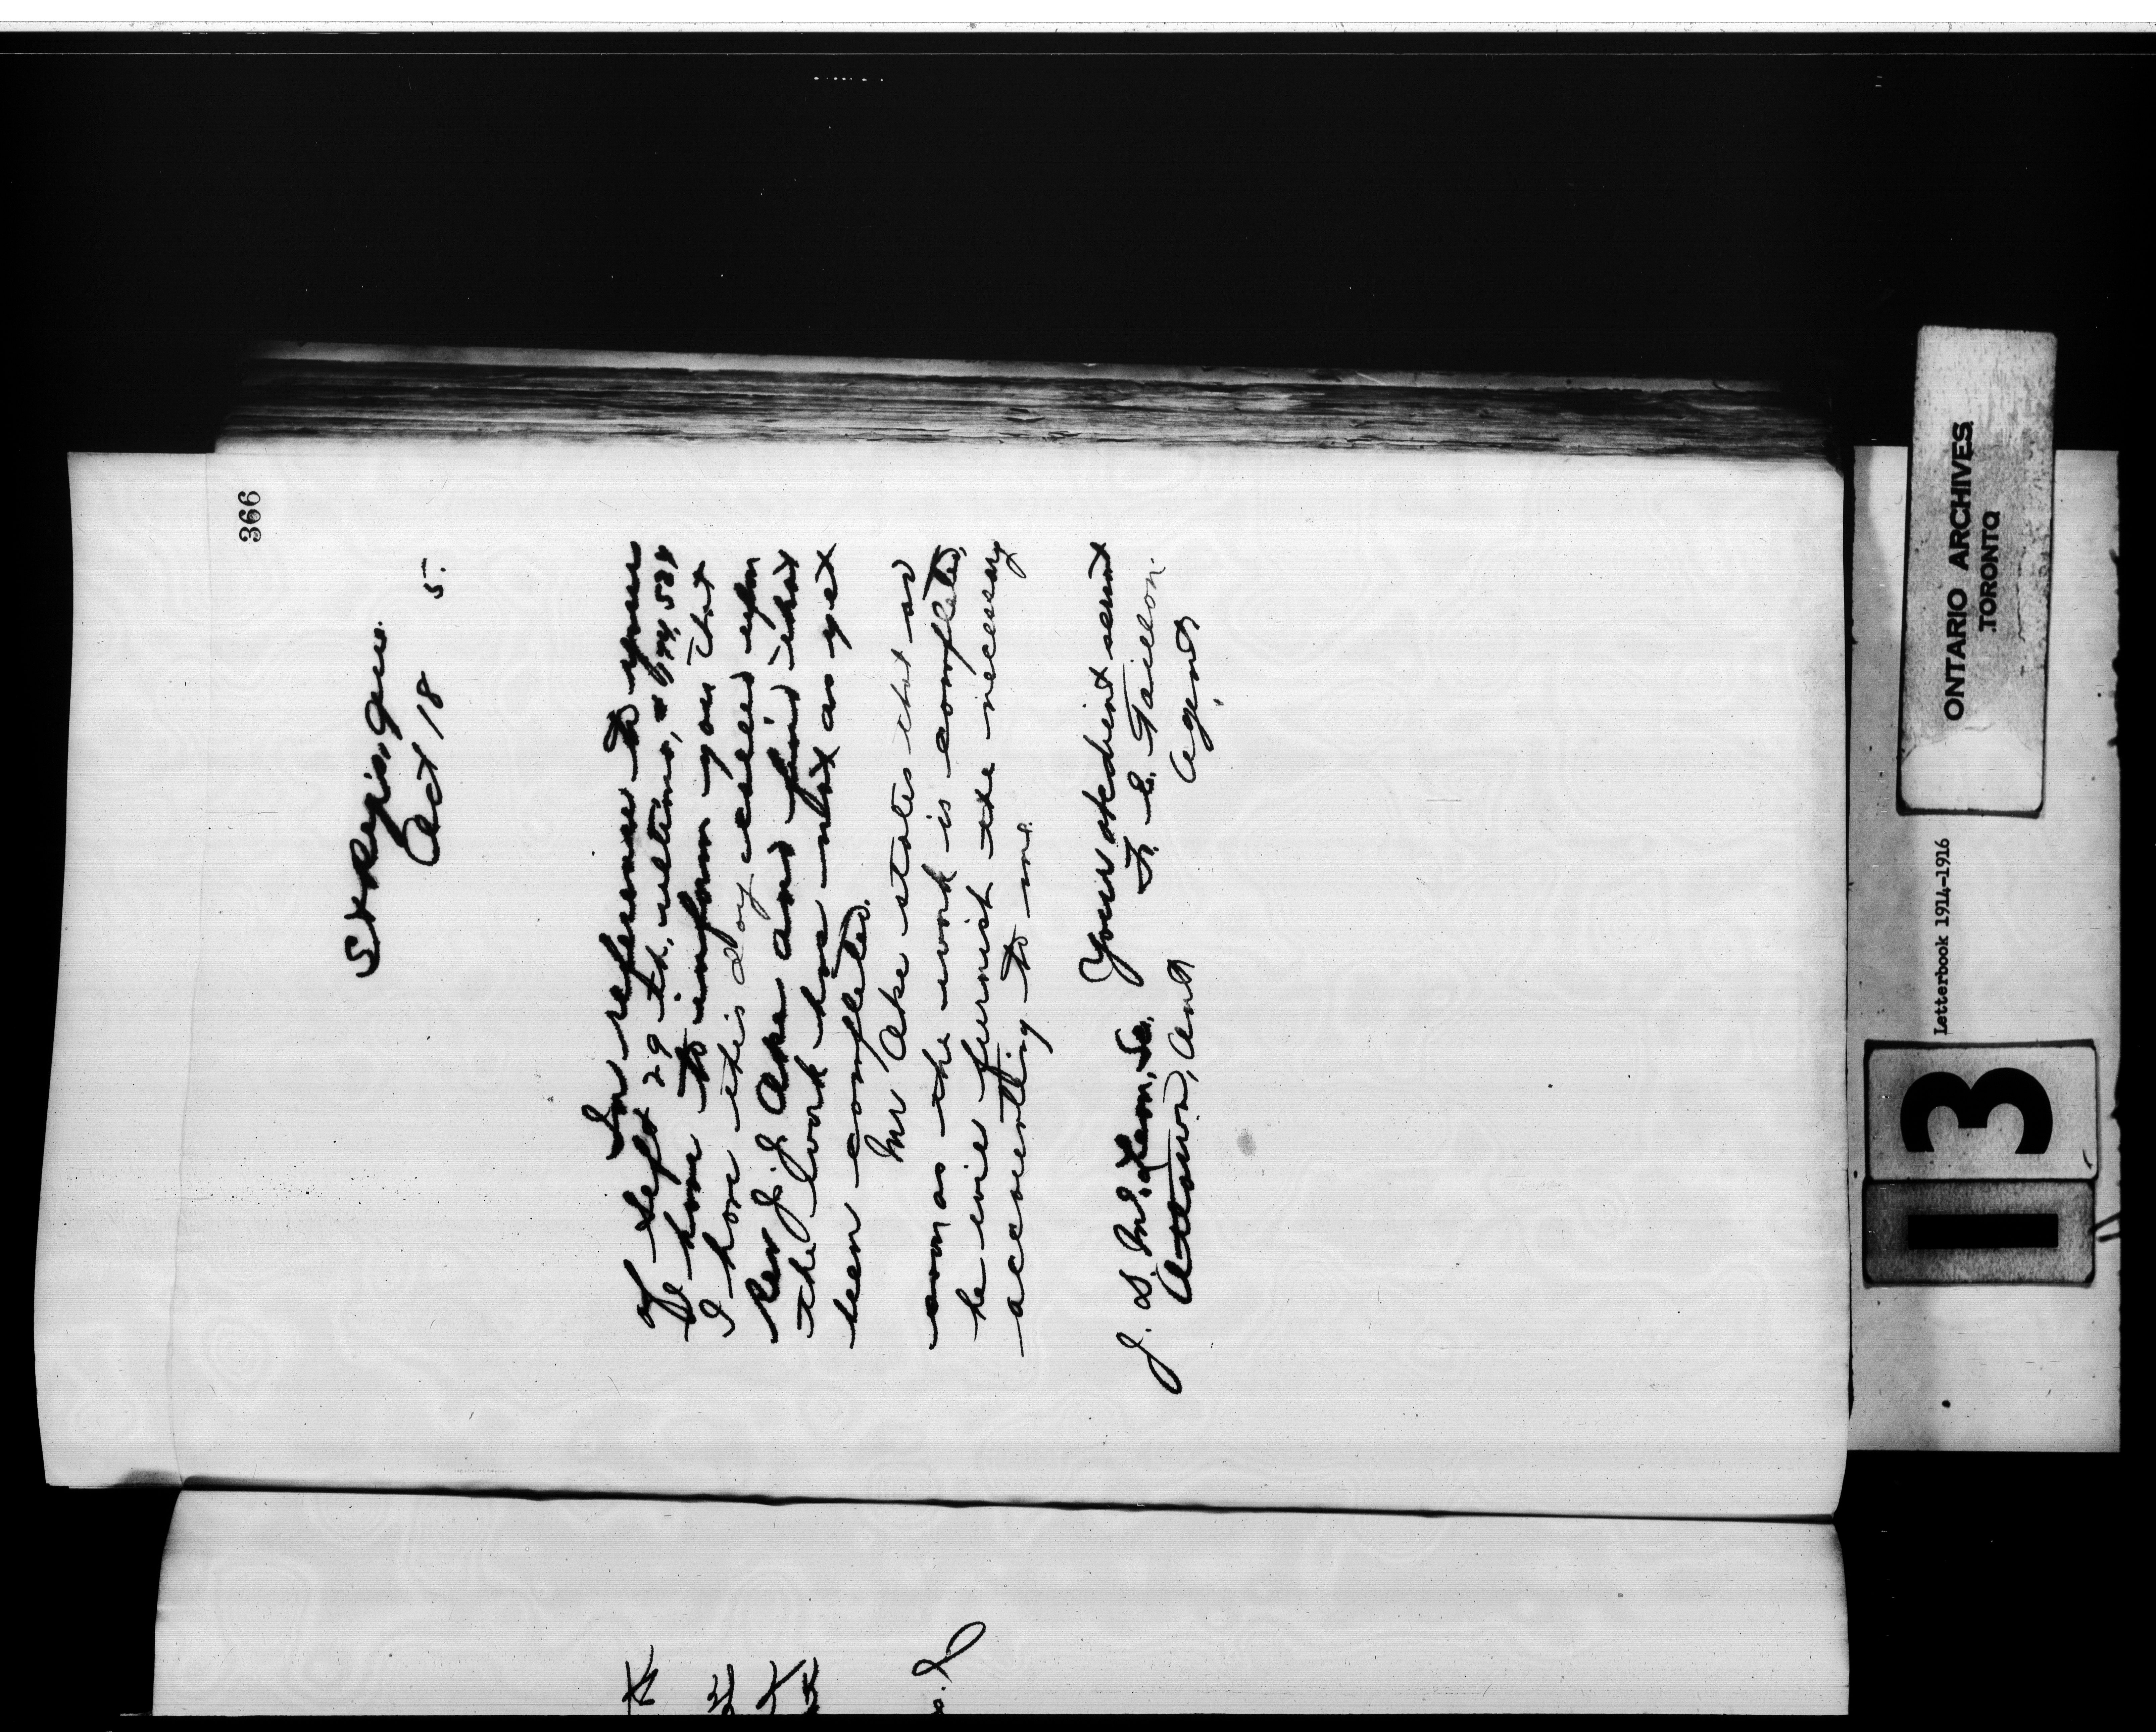 366
St Regis, Que.
Oct 18 5.
In reference to yours
of Sept 29th, ultimo,
I have to inform you that
I have this day called upon
Rev J. J. Ake and find that
the work has not as yet
been completed.
Mr Ake states that as
soon as the work is completed,
he will furnish the necessary
accounting to me.
Your obedient servant
J. D. McLean, Se.
F. E. Taillon
Agent
Ottawa, Ont
ONTARIO ARCHIVES
TORONTO
Letterbook 1914-1916
3